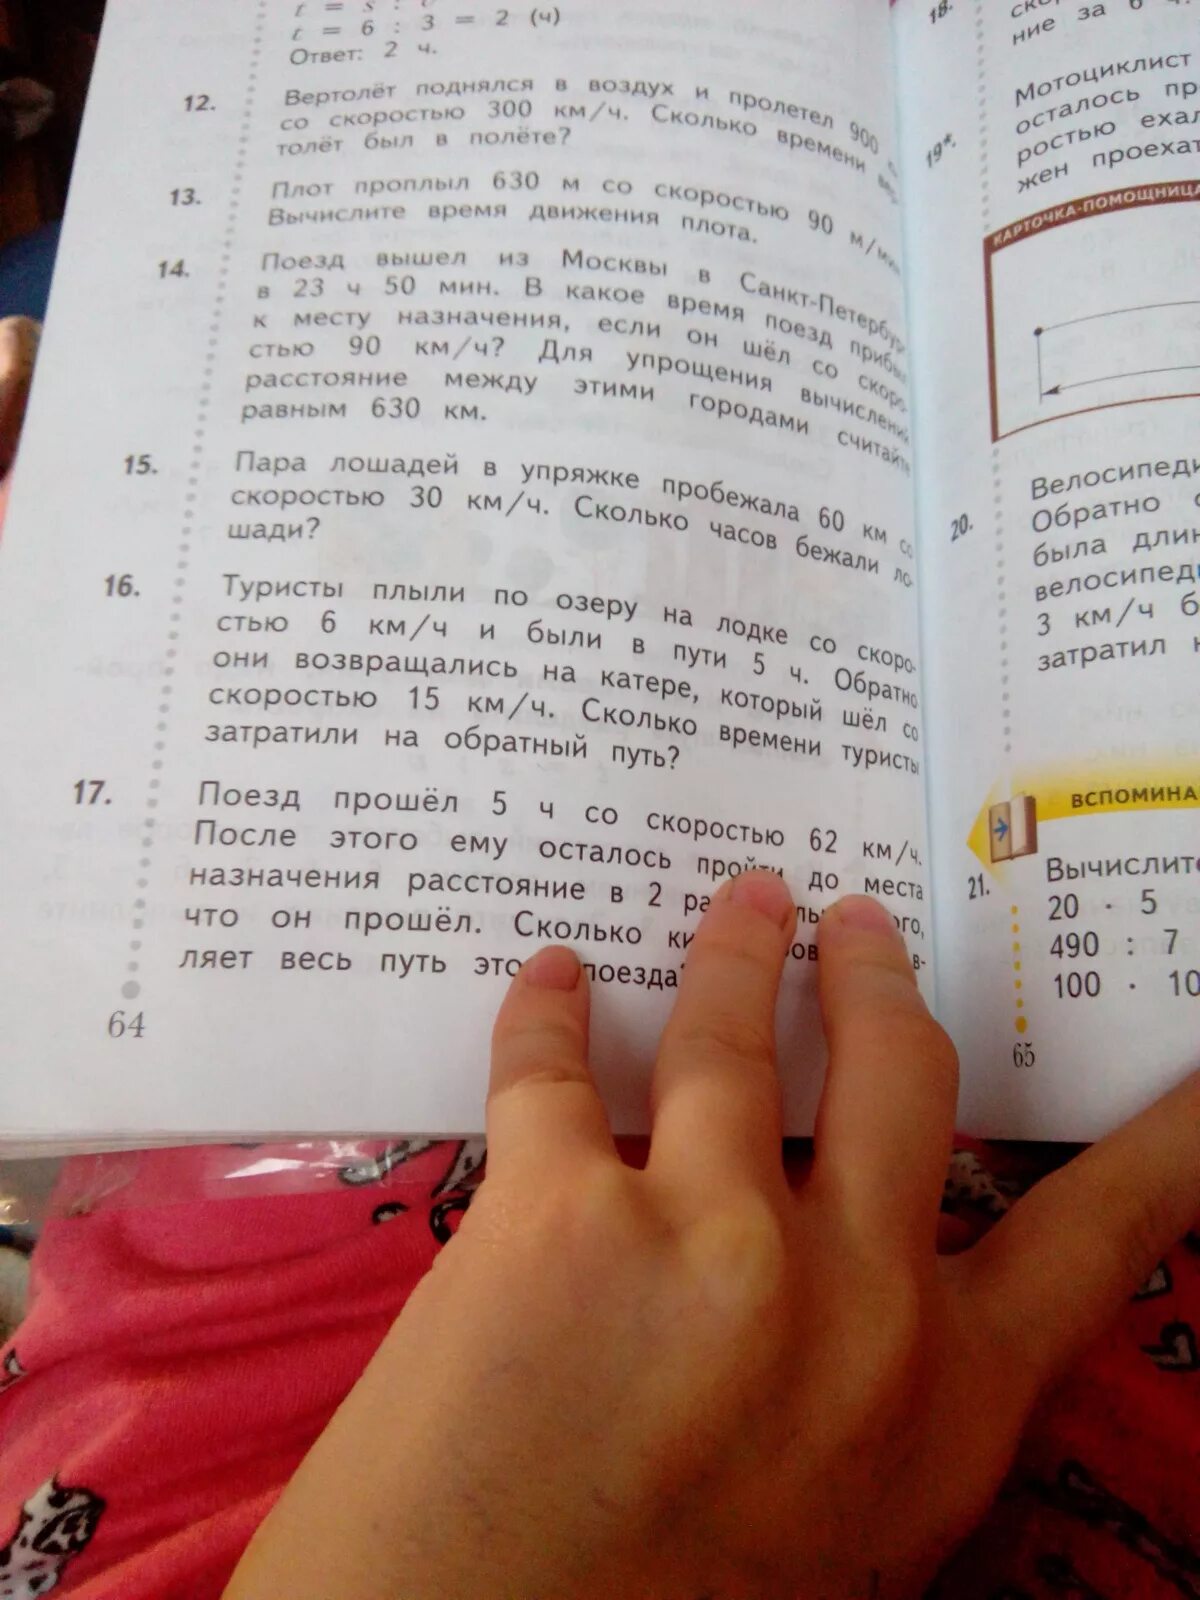 t = 6 : 3 = 2 (ч)
Ответ: 2 ч.
12. Вертолёт поднялся в воздух и пролетел 900
со скоростью 300 км/ч. Сколько времени
толёт был в полёте?
13. Плот проплыл 630 м со скоростью 90 м/мин.
Вычислите время движения плота.
14. Поезд вышел из Москвы в Санкт-Петербург
в 23 ч 50 мин. В какое время поезд прибыл
к месту назначения, если он шёл со скоро-
стью 90 км/ч? Для упрощения вычислений
расстояние между этими городами считайте
равным 630 км.
15. Пара лошадей в упряжке пробежала 60 км со
скоростью 30 км/ч. Сколько часов бежали ло-
шади?
16. Туристы плыли по озеру на лодке со скоро-
стью 6 км/ч и были в пути 5 ч. Обратно
они возвращались на катере, который шёл со
скоростью 15 км/ч. Сколько времени туристы
затратили на обратный путь?
17. Поезд прошёл 5 ч со скоростью 62 км/ч.
После этого ему осталось пройти до места
назначения расстояние в 2
что он прошёл. Сколько
ляет весь путь поезда?
64
18.
ние за 6 ч.
19*. Мотоциклист
осталось
ростью
жен
КАРТОЧКА-ПОМОЩНИЦА
20. Велосипеди
Обратно
была
велосипеди
3 км/ч
затратил
ВСПОМИНА
21. Вычислите
20 · 5
490 : 7
100 · 10
65